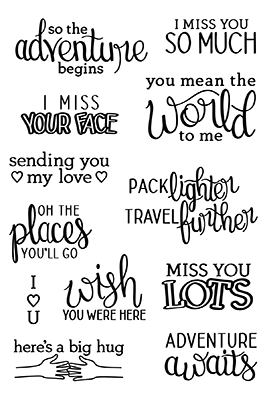 so the
adventure
begins
I MISS YOU
SO MUCH
you mean the
World
to me
I MISS
YOUR FACE
sending you
my love
PACK lighter
TRAVEL further
OH THE
places
YOU'LL GO
I
U
wish
YOU WERE HERE
MISS YOU
LOTS
here's a big hug
ADVENTURE
awaits